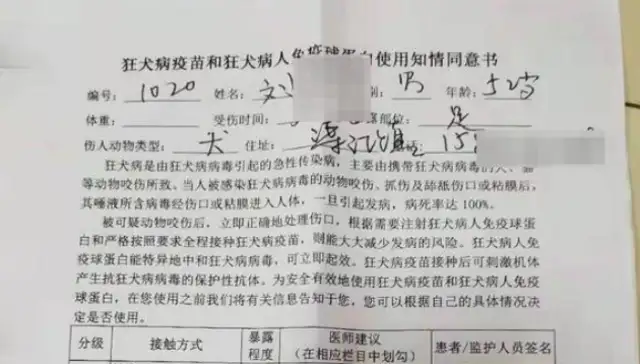 狂犬病疫苗和狂犬病人免疫球蛋白使用知情同意书
编号: 1020 姓名: 刘 别: 男 年龄: 52岁
体重: 受伤时间: 部位: 足
伤人动物类型: 犬 住址: 溪江镇 15
狂犬病是由狂犬病病毒引起的急性传染病,主要由携带狂犬病病毒的犬、猫
等动物咬伤所致。当人被感染狂犬病病毒的动物咬伤、抓伤及舔舐伤口或粘膜后,
其唾液所含病毒经伤口或粘膜进入人体,一旦引起发病,病死率达 100%。
被可疑动物咬伤后,立即正确地处理伤口,根据需要注射狂犬病人免疫球蛋
白和严格按照要求全程接种狂犬病疫苗,则能大大减少发病的风险。狂犬病人免
疫球蛋白能特异地中和狂犬病病毒,可立即起效。狂犬病疫苗接种后可刺激机体
产生抗狂犬病病毒的保护性抗体。为安全有效地使用狂犬病疫苗和狂犬病人免疫
球蛋白,在您使用之前我们将有关信息告知于您,您可以根据自己的具体情况决定
是否使用。
分级 接触方式 暴露程度 医师建议 (在相应栏目中划勾) 患者/监护人员签名